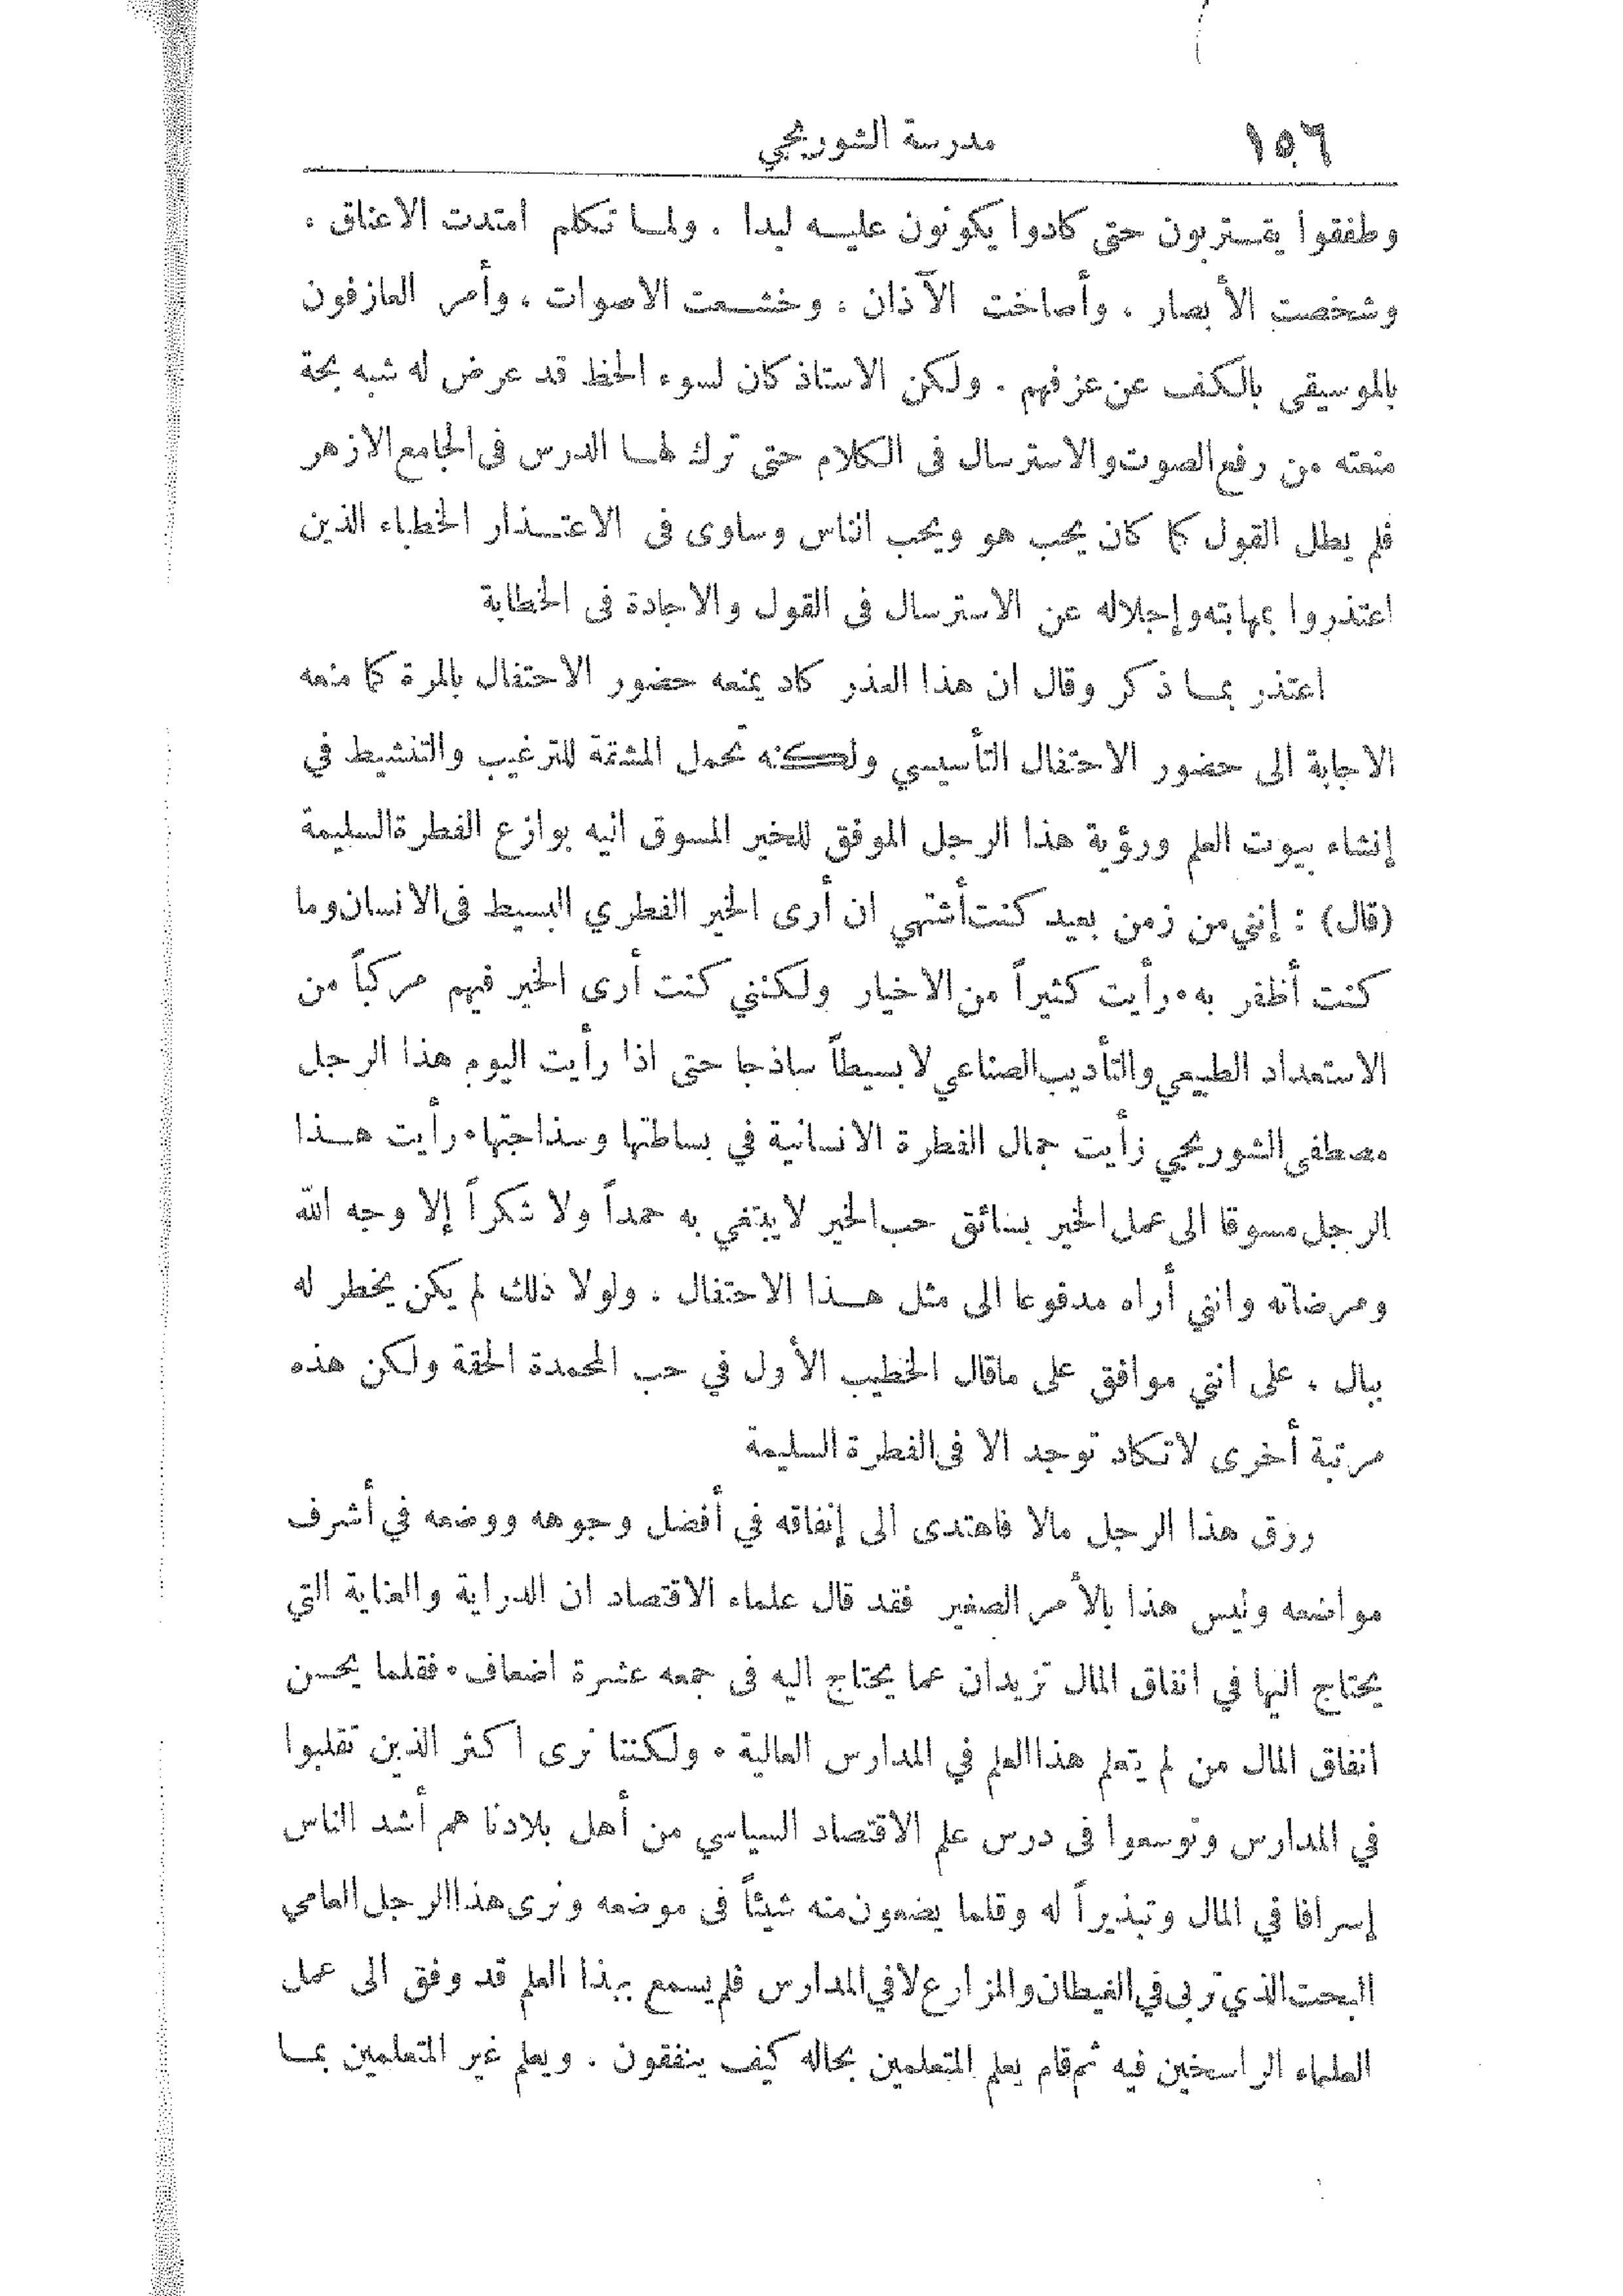 ١٥٦ مدرسة الشوريجي
وطفقوا يقـتربون حتى كادوا يكونون عليـه لبدا . ولمـا تكلم امتدت الاعناق .
وشخصت الأبصار ، وأصاخت الآذان ، وخشـعت الاصوات ، وأمر العازفون
بالموسيقى بالكف عن عزفهم . ولكن الاستاذ كان لسوء الحظ قد عرض له شبه بحة
منعته من رفع الصوت والاسترسال فى الكلام حتى ترك لهـا الدرس فى الجامع الازهر
فلم يطل القول كما كان يحب هو ويحب الناس وساوى فى الاعتـذار الخطباء الذين
اعتذروا بمهابته وإجلاله عن الاسترسال فى القول والاجادة فى الخطابة
اعتذر بمـا ذكر وقال ان هذا العذر كاد يمنعه حضور الاحتفال بالمرة كما منعه
الاجابة الى حضور الاحتفال التأسيسي ولكنه تحمل المشقة للترغيب والتنشيط في
إنشاء بيوت العلم ورؤية هذا الرجل الموفق للخير المسوق اليه بوازع الفطرة السليمة
(قال) : إنني من زمن بعيد كنت أشتهي ان أرى الخير الفطري البسيط فى الانسان وما
كنت أظفر به • رأيت كثيراً من الاخيار ولكنني كنت أرى الخير فيهم مركباً من
الاستعداد الطبيعي والتأديب الصناعي لا بسيطاً ساذجا حتى اذا رأيت اليوم هذا الرجل
مصطفى الشوريجي رأيت جمال الفطرة الانسانية في بساطتها وسذاجتها • رأيت هـذا
الرجل مسوقا الى عمل الخير بسائق حب الخير لا يبتغي به حمداً ولا شكراً إلا وجه الله
ومرضاته وانني أراه مدفوعا الى مثل هـذا الاحتفال . ولولا ذلك لم يكن يخطر له
ببال ، على انني موافق على ماقال الخطيب الأول في حب المحمدة الحقة ولكن هذه
مرتبة أخرى لاتكاد توجد الا فى الفطرة السليمة
رزق هذا الرجل مالا فاهتدى الى إنفاقه في أفضل وجوهه ووضعه في أشرف
مواضعه وليس هذا بالأمر الصغير فقد قال علماء الاقتصاد ان الدراية والعناية التي
يحتاج اليها في انفاق المال تزيدان عما يحتاج اليه فى جمعه عشرة اضعاف • فقلما يحسن
انفاق المال من لم يتعلم هذا العلم في المدارس العالية • ولكننا نرى اكثر الذين تقلبوا
في المدارس وتوسعوا فى درس علم الاقتصاد السياسي من أهل بلادنا هم أشد الناس
إسرافا في المال وتبذيراً له وقلما يضعون منه شيئاً فى موضعه ونرى هذا الرجل العامي
البحت الذي تربى في الغيطان والمزارع لا في المدارس فلم يسمع بهذا العلم قد وفق الى عمل
العلماء الراسخين فيه ثم قام يعلم المتعلمين بحاله كيف ينفقون . ويعلم غير المتعلمين بمـا